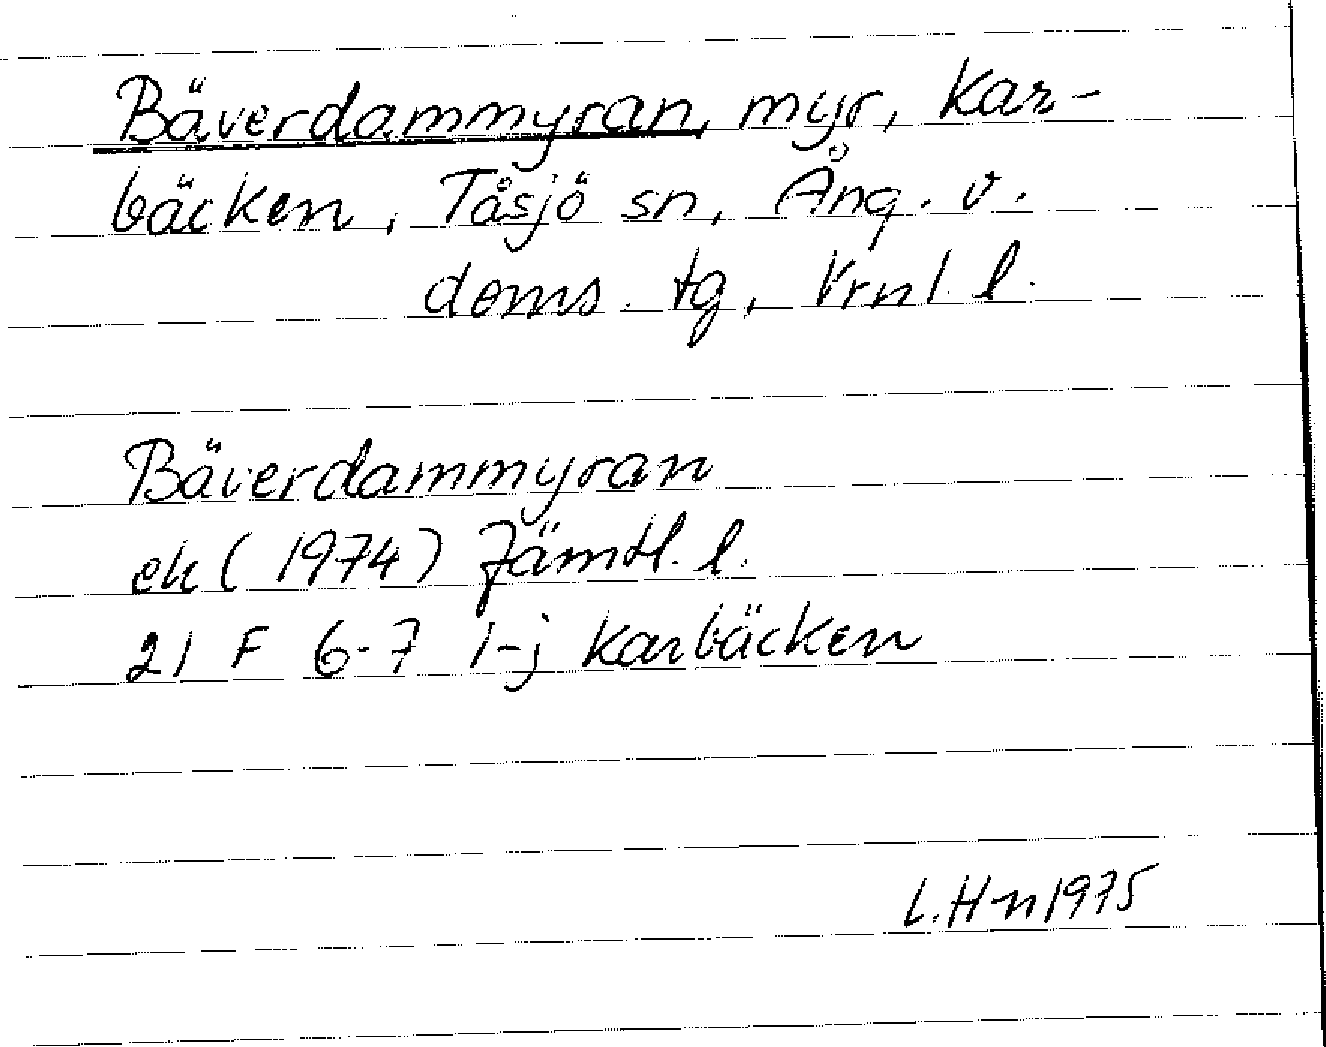 Bäverdammyran, myr, Kar-
bäcken, Tåsjö sn, Ång. v.
doms. tg, Vrnl. l.
Bäverdammyran
ek (1974) Jämtl. l.
21 F 6-7 i-j Karbäcken
L. H-n 1975